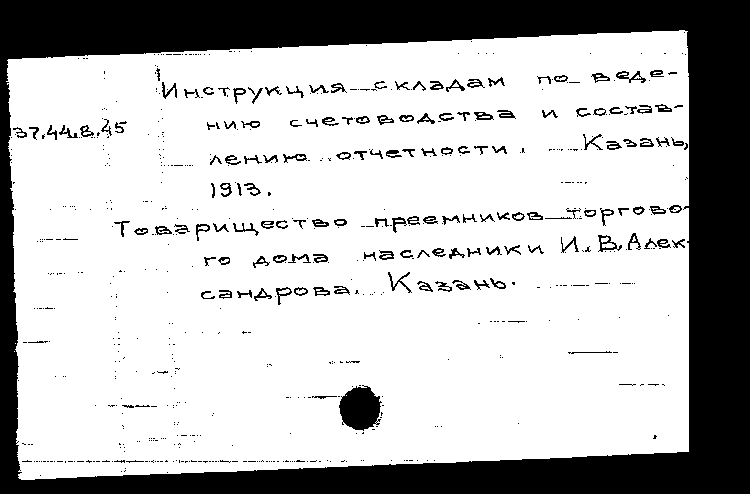 Инструкция складам по веде-
37.44.8.45
нию счетоводства и состав-
лению отчетности. Казань,
1913.
Товарищество преемников торгово-
го дома наследники И.В.Алек-
сандрова. Казань.